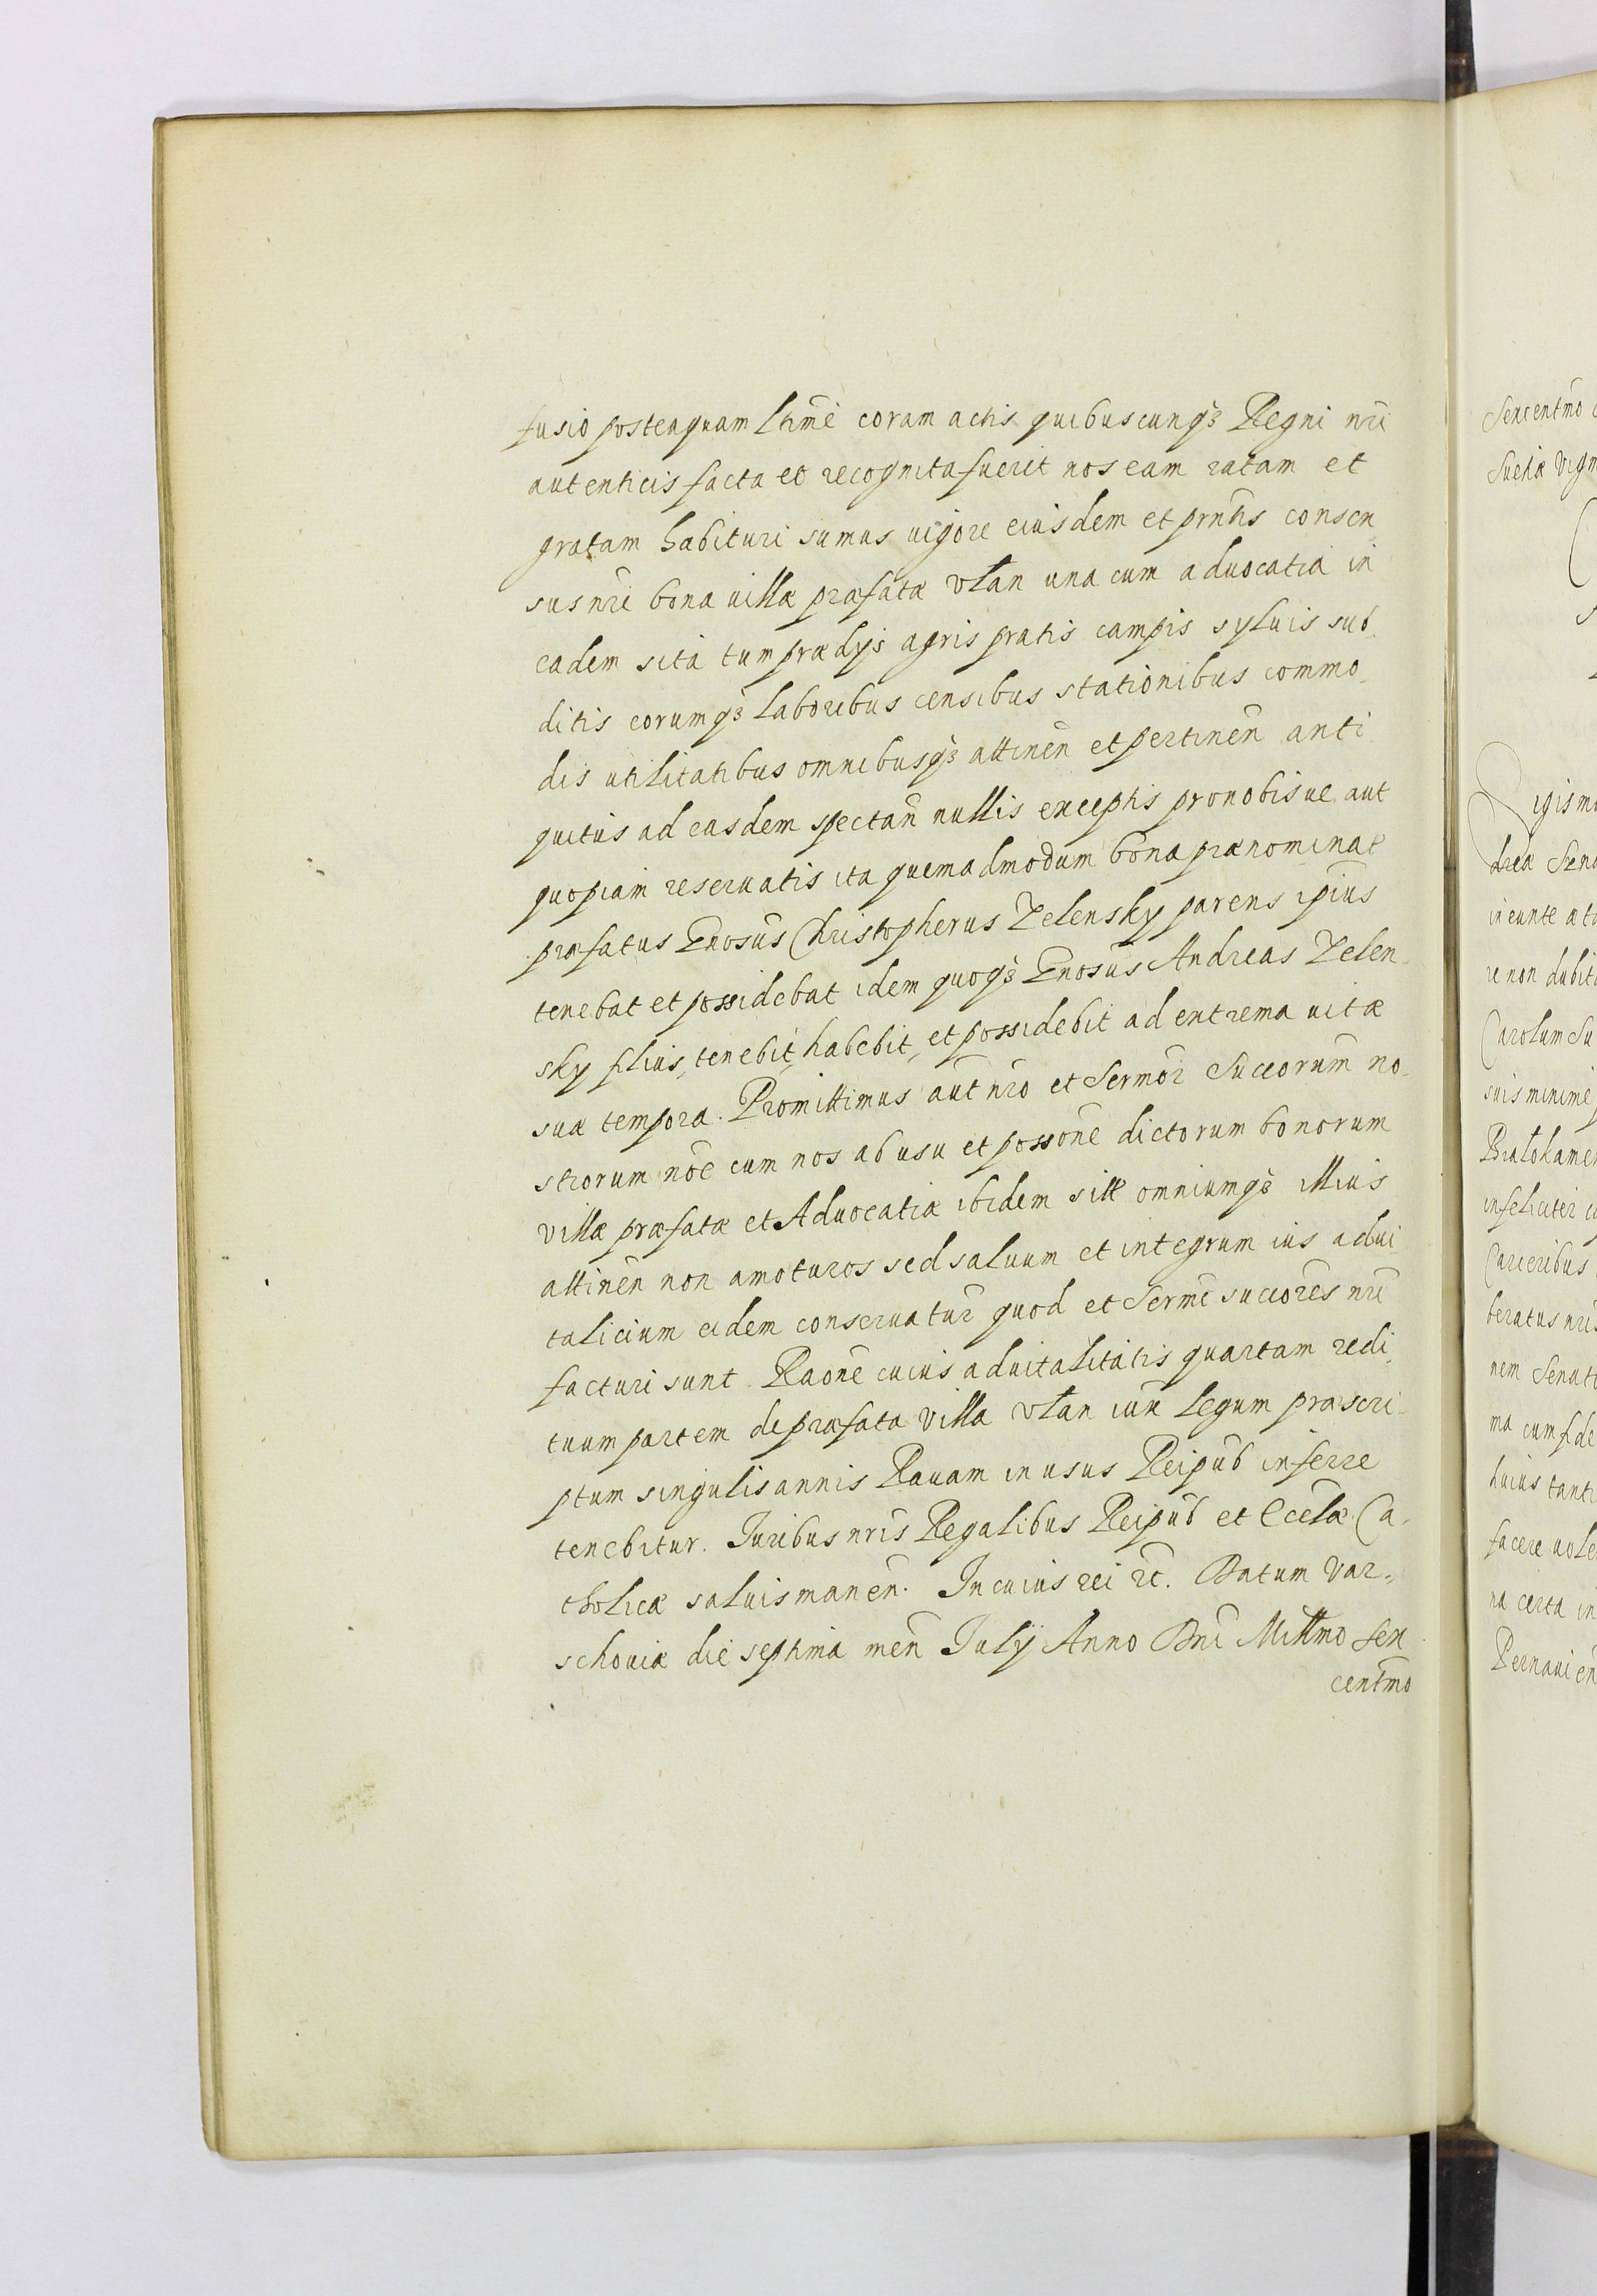 fusio posteaquam ltimē coram actis quibuscunqꝫ Regni nrī
autenticis facta et recognita fuerit nos eam ratam et
gratam habituri sumus uigore eiusdem et prntis consen
sus nrī bona uillæ præfatæ Vłan una cum aduocatia in
eadem sita tum prædijs agris pratis campis syluis sub
ditis eorumqꝫ laboribus censibus stationibus commo
dis utilitatibus omnibusqꝫ attinen̄ et pertinen̄ anti
quitus ad easdem spectan̄ nullis exceptis pro nobis ue aut
quopiam reseruatis ita quemadmodum bona prænominat
præfatus Gnosus Christopherus Zelensky parens ipius
tenebat et possidebat idem quoqꝫ Gnosus Andreas Zelen
sky filius, tenebit, habebit, et possidebit ad extrema uitæ
suæ tempora. Promittimus aut nrō et Sermor̄ Succorum no
strorum noē eum nos ab usu et possonē dictorum bonorum
villæ præfatæ et Aduocatiæ ibidem sitæ omniumqꝫ illius
attinen̄ non amoturos sed saluum et integrum ius adui
talicium eidem conseruatur̄ quod et Sermi succores nrī
facturi sunt. Raonē cuius aduitalitatis quartam redi
tuum partem de præfata villa Vłan iux̄ legum præscri
ptum singulis annis Rauam in usus Reipub inferre
tenebitur. Iuribus nrīs Regalibus Reipub et Ecclæ Ca
tholicæ saluis manen̄. In cuius rei ꝛc. Datum Var=
schouiæ die septima men̄ Iulij Anno Dnī Millmo Sex
centmo
Sexcentmo
Sueciæ Vign
igism
dreæ Seno
ineunte æta
re non dubita
Carolum Su
suis minime
infeliciter c
Carceribus
beratus nris
nem Senat
ma cum fide
huius tanti
facere uole
na certa in
Pernauien